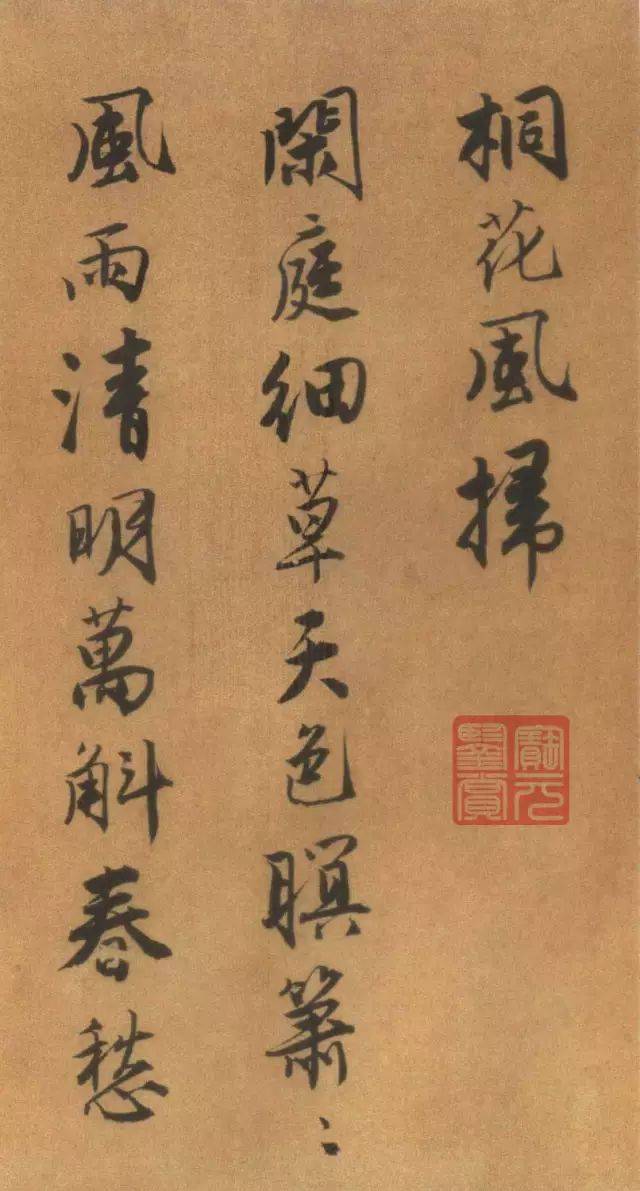 桐花風掃
閑庭細草天色暝簫〻
風雨清明萬斛春愁
寶元鑒賞